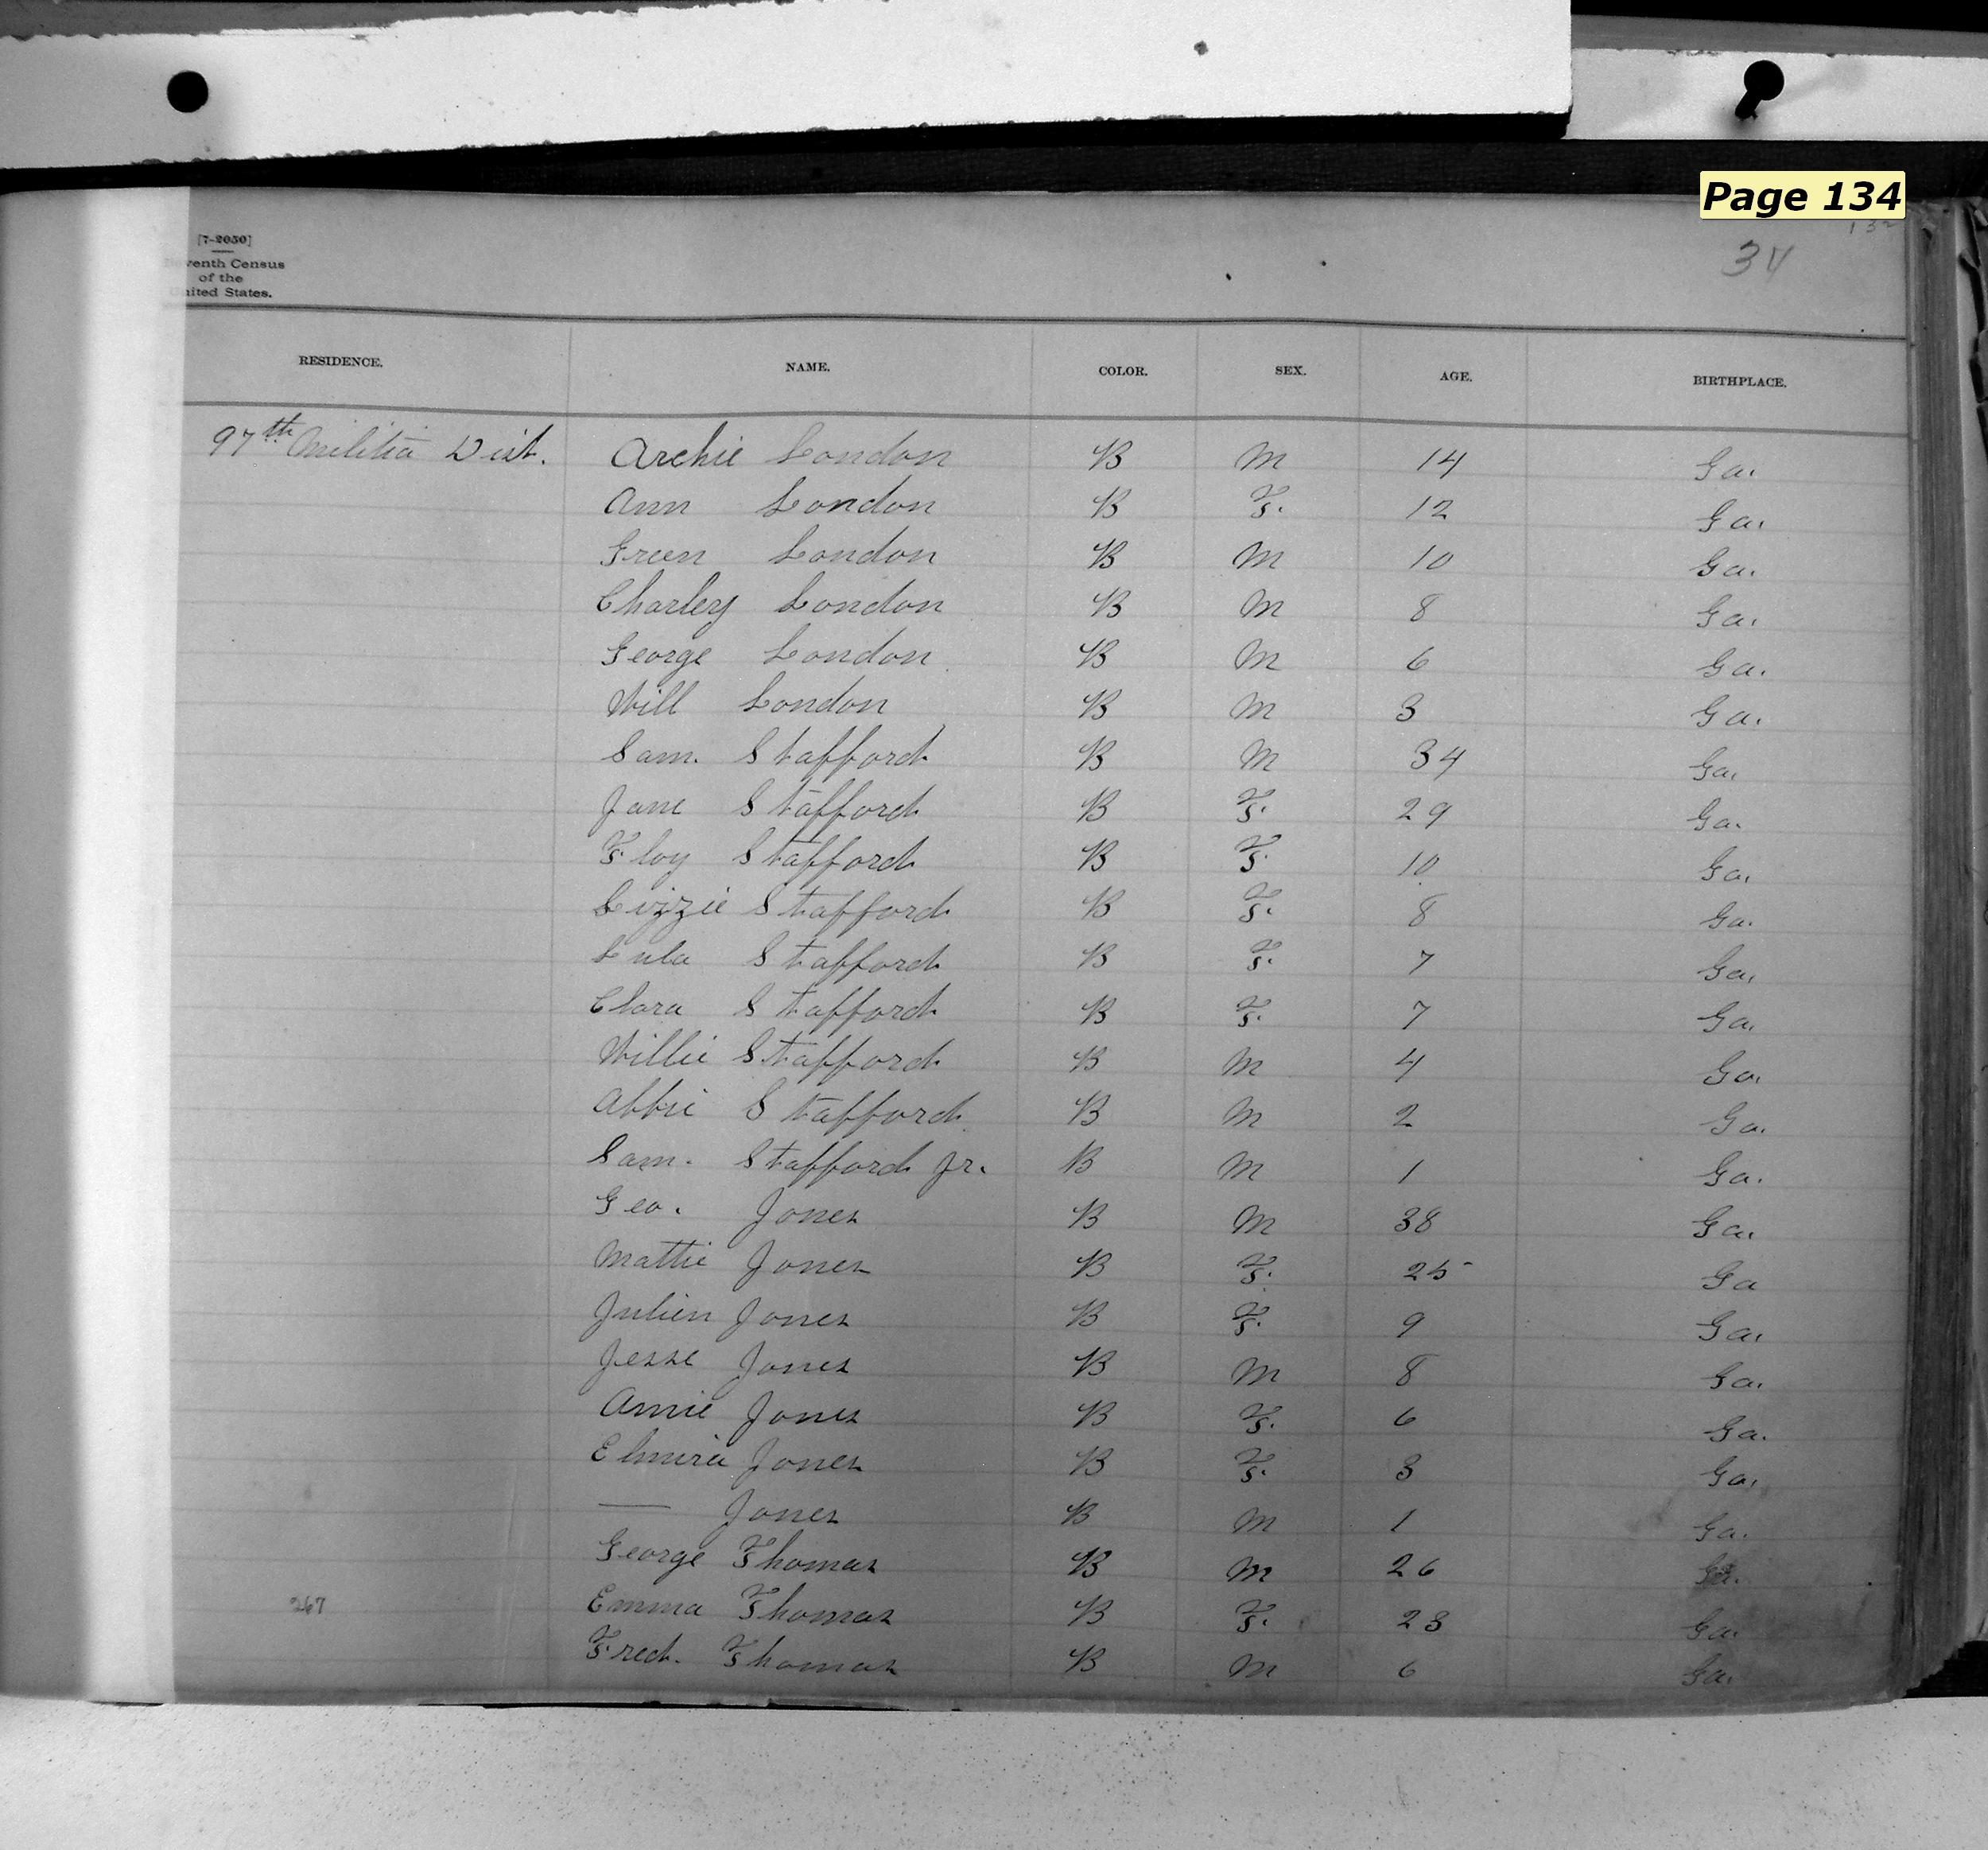 Page 134
34
[7-2050]
venth Census
of the
nited States.
RESIDENCE. NAME. COLOR. SEX. AGE. BIRTHPLACE.
97th Militia Dist. Archie London B M 14 Ga.
Ann London B F. 12 Ga.
Green London B M 10 Ga.
Charley London B M 8 Ga.
George London B M 6 Ga.
Will London B M 3 Ga.
Sam. Stafford B M 34 Ga.
Jane Stafford B F. 29 Ga.
Floy Stafford B F. 10 Ga.
Lizzie Stafford B F. 8 Ga.
Lula Stafford B F. 7 Ga.
Clara Stafford B F. 7 Ga.
Willie Stafford B M 4 Ga.
Abbie Stafford B M 2 Ga.
Sam. Stafford Jr. B M 1 Ga.
Geo. Jones B M 38 Ga.
Mattie Jones B F. 25 Ga
Julien Jones B F. 9 Ga.
Jesse Jones B M 8 Ga.
Annie Jones B F. 6 Ga.
Elmira Jones B F. 3 Ga.
— Jones B M 1 Ga.
George Thomas B M 26 Ga.
267 Emma Thomas B F. 23 Ga.
Fred. Thomas B M 6 Ga.